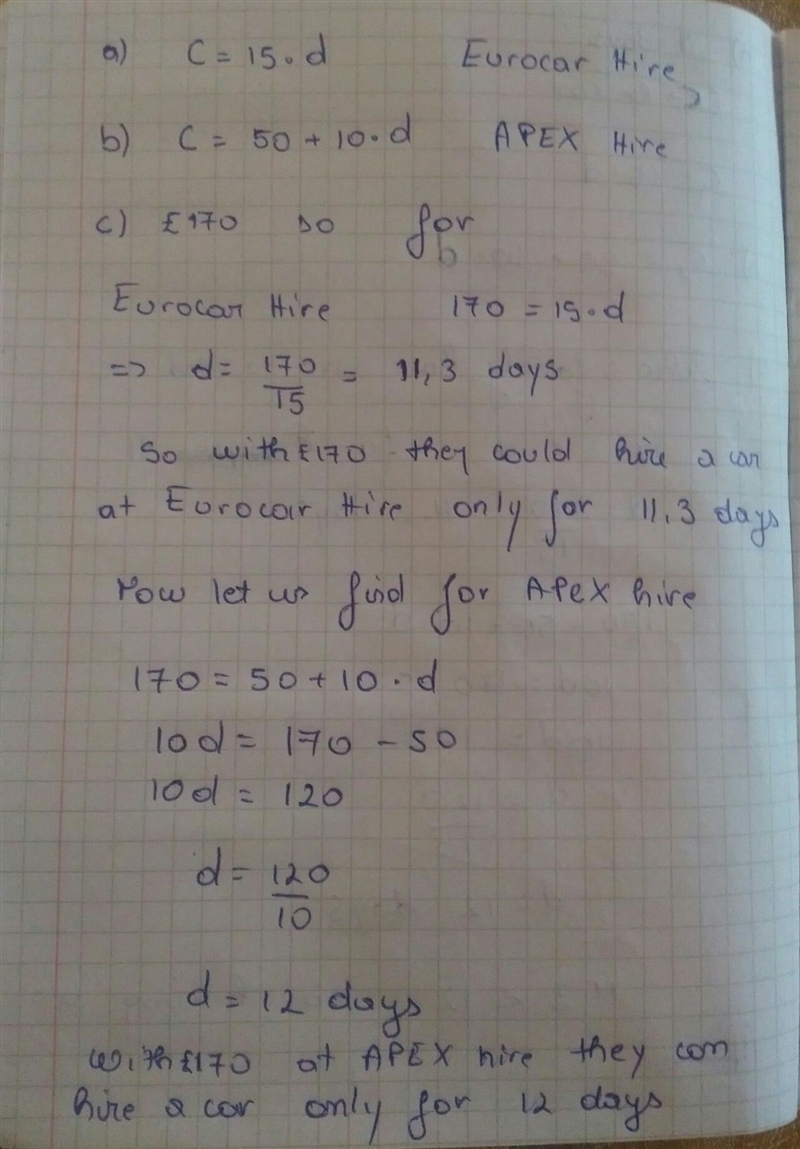 a) C = 15 · d Eurocar Hire,
b) C = 50 + 10 · d APEX Hire
c) £170 so for
Eurocar Hire 170 = 15 · d
=> d = 170/15 = 11,3 days
So with £170 they could hire a car
at Eurocar Hire only for 11.3 days
Now let us find for APEX hire
170 = 50 + 10 · d
10d = 170 - 50
10d = 120
d = 120/10
d = 12 days
With £170 at APEX hire they can
hire a car only for 12 days